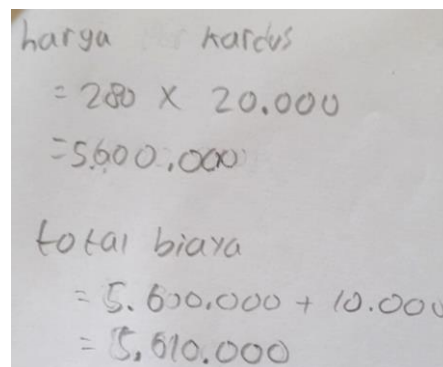 harga kardus
= 280 x 20.000
= 5.600.000
total biaya
= 5.600.000 + 10.000
= 5.610.000